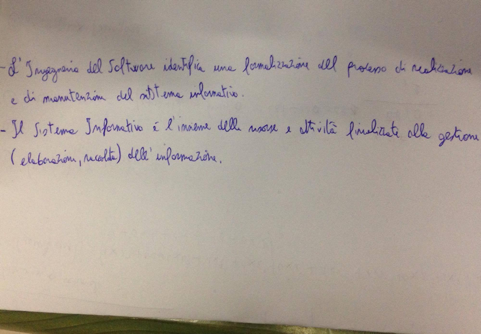 - L'Ingegneria del Software identifica una formalizzazione del processo di realizzazione
e di manutenzione del sistema informativo.
- Il Sistema Informativo è l'insieme delle risorse e attività finalizzate alla gestione
(elaborazioni, raccolta) dell'informazione.